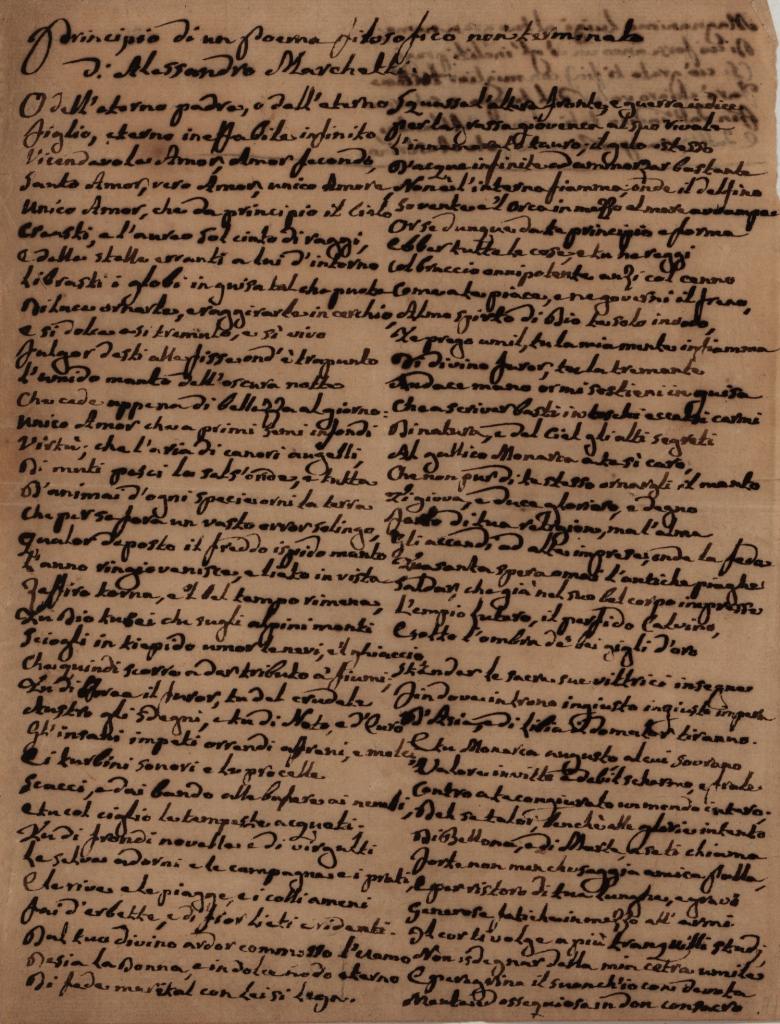 Principio di un Poema filosofico non terminato
Di Alessandro Marchetti
O dell'eterno padre, o dell'eterno
figlio, eterno ineffabile infinito
Vicendevole Amor, Amor fecondo,
Santo Amor, vero Amor, unico Amore
Unico Amor, che da principio il Cielo
Creasti, e l'aureo Sol cinto di raggi,
E delle stelle erranti a lui d'intorno
Librasti i globi in guisa tal che puote
Di luce ornarle, e raggirarle in cerchio,
e sì dolce e sì tremulo, e sì vivo
Fulgor desti alle fisse ond'è trapunto
L'umido manto dell'oscura notte
Che cede appena di bellezza al giorno:
Unico Amor che a primi semi infondi
Virtù, che l'aria di canori augelli,
Di muti pesci le sals'onde, e tutta
D'animai d'ogni specie orni la terra
Che per se fora un vasto orror solingo,
Qualor deposto il freddo ispido manto
L'anno ringiovenisce, e lieto in vista
Zeffiro torna, e'l bel tempo rimena,
Tu Dio tu sei che sugli alpini monti
Sciogli in tiepido umor le nevi, e'l ghiaccio,
Che quindi scorre a dar tributo a' fiumi,
Tu di Borea il furor, tu del crudele
Austro gli sdegni, e tu di Noto, e d'Euro
Gl'insani impeti orrendi affreni, e
E i turbini sonori e le procelle
Scacci, e dai bando alle bufere ai nembi,
e tu col ciglio le tempeste acqueti.
Tu di frondi novelle e di virgulti
Le selve adorni e le campagne e i prati
E le rive e le piagge, e i colli ameni
Fai d'erbette, e di fior lieti e ridenti.
Dal tuo divino ardor commosso l'Uomo
Desia la Donna, e in dolce nodo eterno
Di fede marital con lei si lega.
Squassa l'altera fronte, e guerra indice
Per la grassa giovenca al suo rivale
L'innamorato tauro; il gelo stesso
D'acque infinite ad ammorzar bastante
Non è l'interna fiamma; onde il delfino
Sovente e l'Orca in mezzo al mare avvampa
Or se dunque da te principio e forma
Ebber tutte le cose, e tu ne reggi
Col braccio onnipotente anzi col cenno
Come a te piace, e ne governi il freno,
Almo spirto di Dio te solo invoco,
Te prego umil, tu la mia mente infiamma
Di divino furor, tu la tremante
Audace mano or mi sostieni in guisa
Che a scriver basti in toschi eccelsi carmi
Di natura, e del Ciel gli alti segreti
Al gallico Monarca a te sì caro,
Che non pur di te stesso ornargli il manto
Ti giova, e duce glorioso, e degno
Farlo di tua religione, ma l'alma
Gli accendi ad alte imprese, onde la fede
Tua santa spera omai l'antiche piaghe
Saldar, che già nel suo bel corpo impresse
L'empio Lutero, il perfido Calvino,
E sotto l'ombra de' bei gigli d'oro
Stender le sacre sue vittrici insegne
Fin dove in trono ingiusto ingiusto impera
D'Asia, e di Libia il domator tiranno.
E tu Monarca augusto al cui sovrano
Valore invitto è debil schermo, e frale
Contro a te congiurato un mondo intero.
Del se talor, benchè alle glorie intento
Di Bellona, e di Marte, a se ti chiama
Forte non men che saggia amica Palla,
E per ristoro di tue lunghe, e gravi
Generose fatiche in mezzo all'armi
Il cor ti volge a più tranquilli studi,
Non isdegnar dalla mia cetra umile
E peregrina il suon, ch'io con devota
Mente ed ossequiosa in don consacro